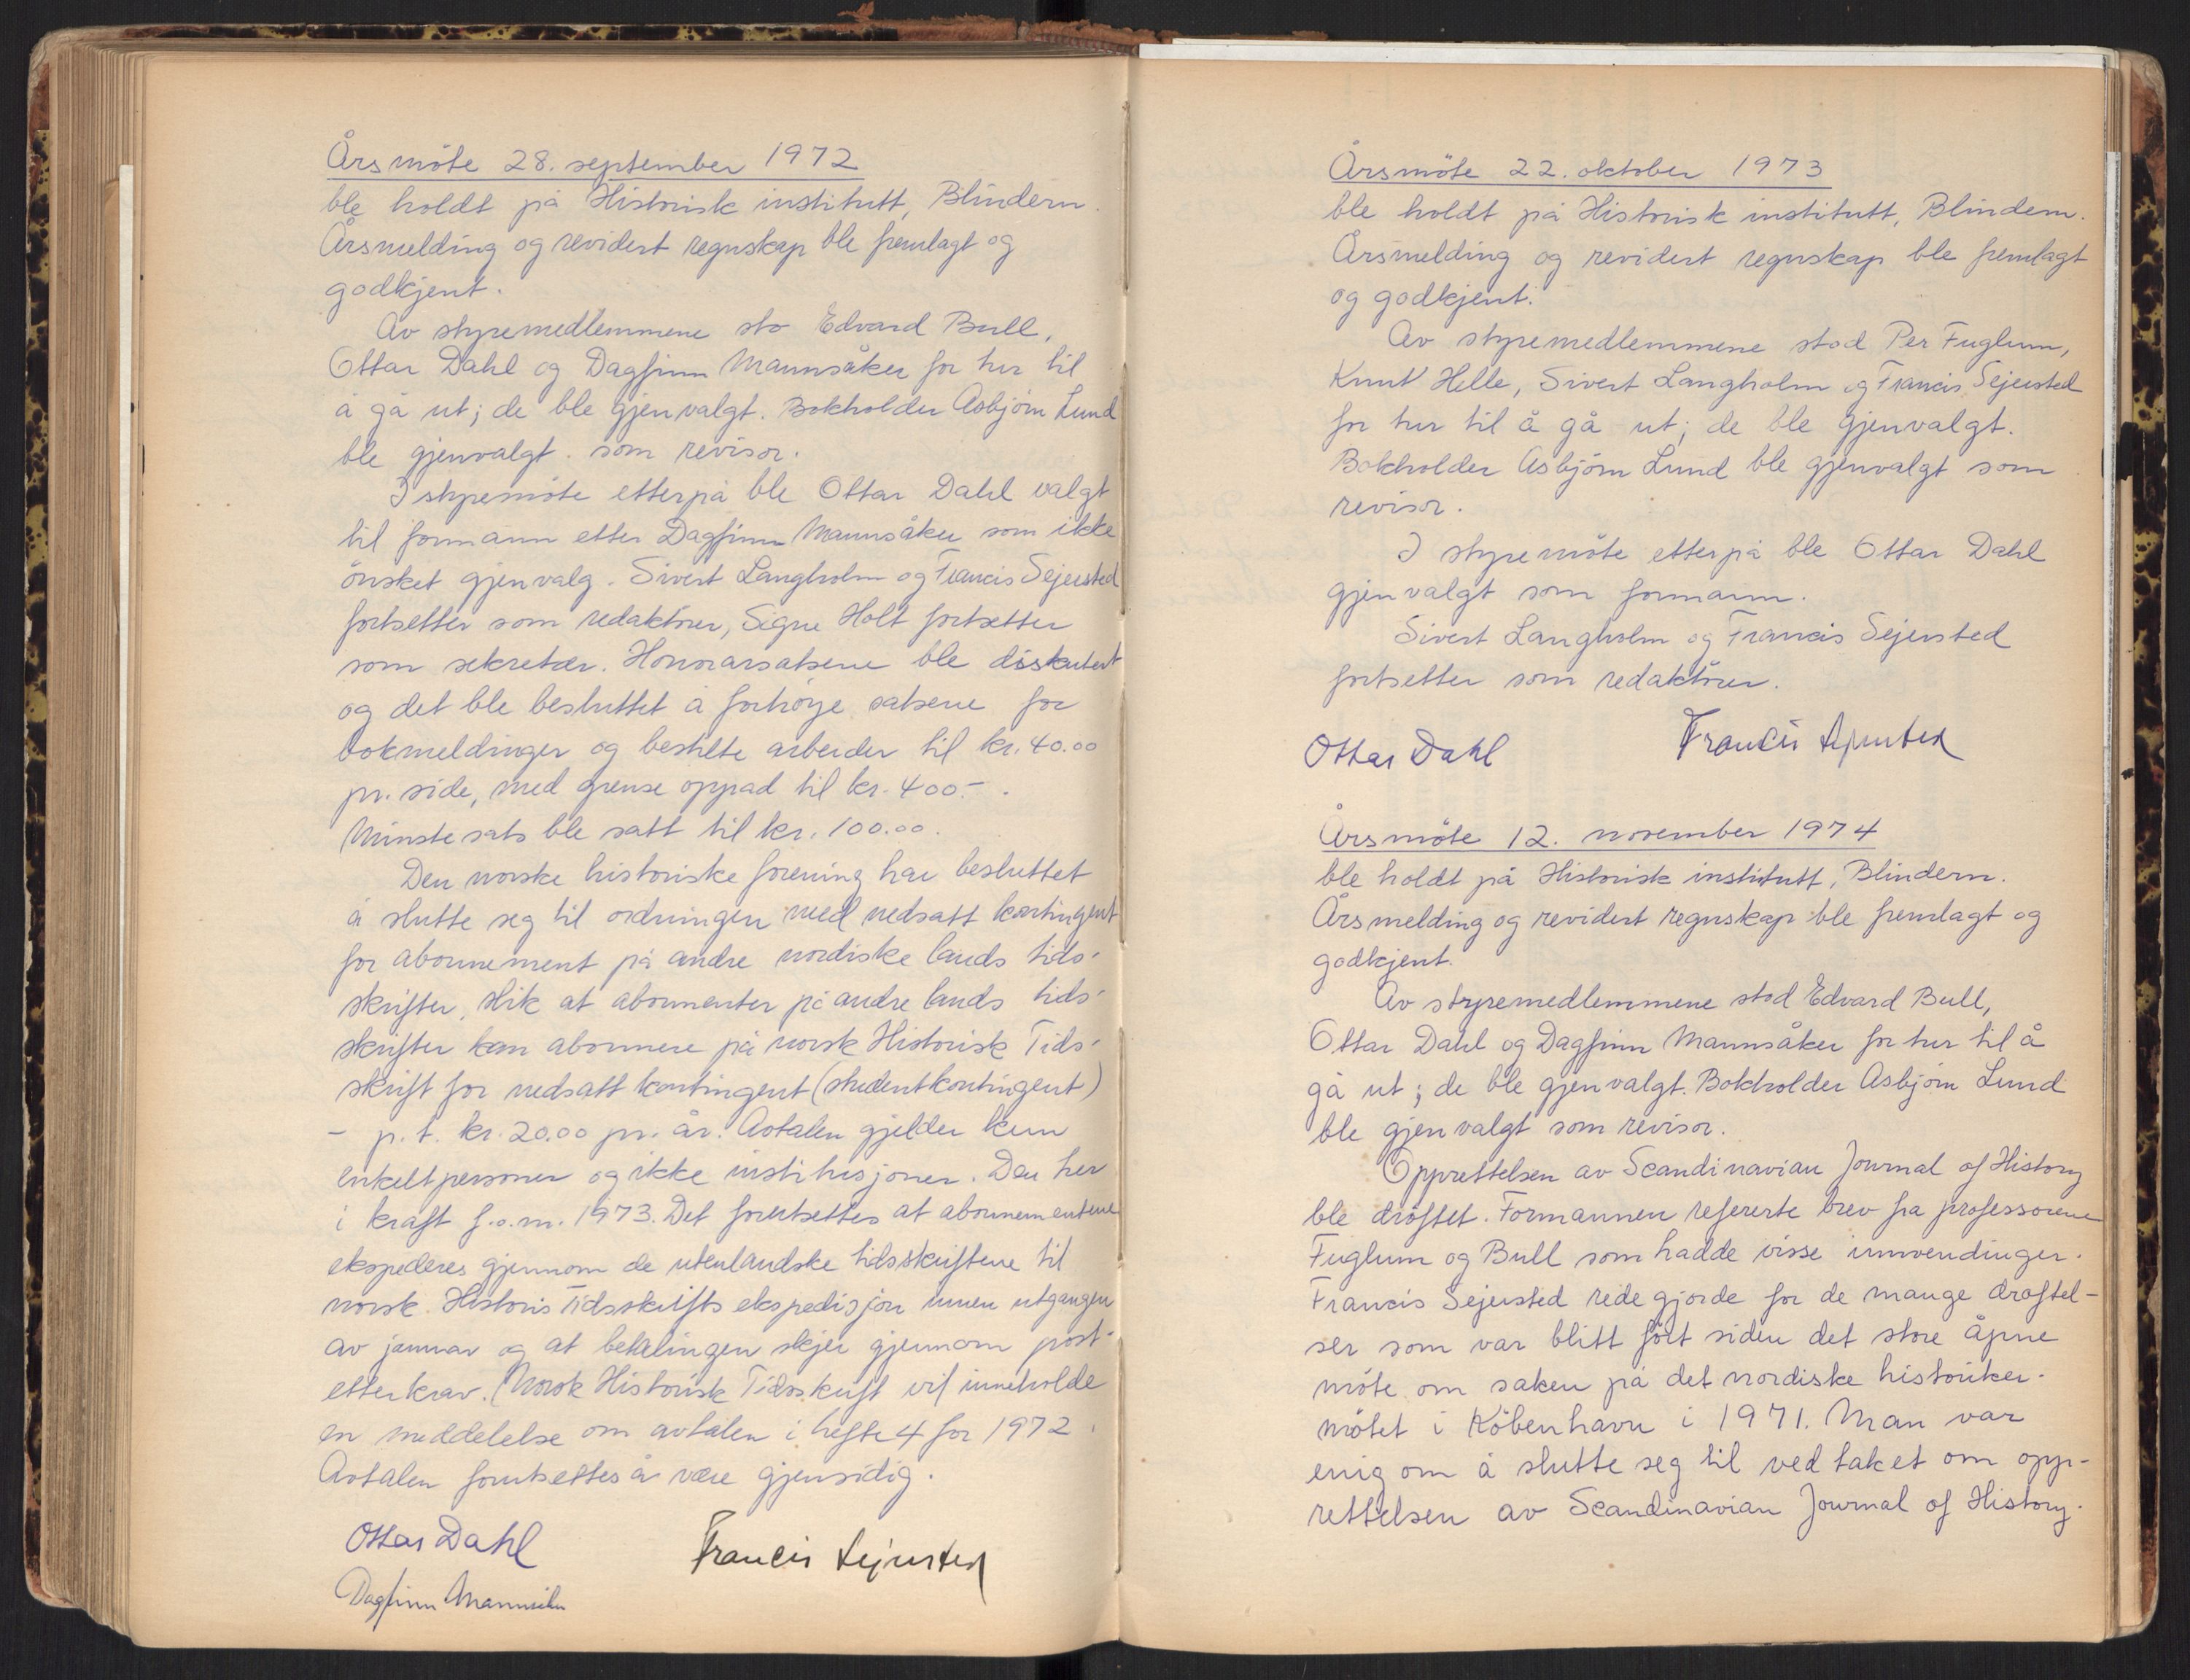 Årsmöte 28. september 1972
ble holdt på Historisk institutt, Blindern.
Årsmelding og revidert regnskap ble fremlagt og
godkjent.
Av styremedlemmene sto Edvard Bull,
Ottar Dahl og Dagfinn Mannsåker for tur til
å gå ut; de ble gjenvalgt. Bokholder Asbjörn Lund
ble gjenvalgt. som revisor.
I styremöte etterpå ble Ottar Dahl valgt
til formann etter Dagfinn Mannsåker som ikke
önsket gjenvalg. Sivert Langholm og Francis Sejersted
fortsetter som redaktörer, Signe Holt fortsetter
som sekretær. Honorarsatsene ble diskutert
og det ble besluttet å forhöye satsene for
bokmeldinger og bestilte arbeider til kr. 40.00
pr. side, med grense oppad til kr. 400.-.
Minstesats ble satt til kr. 100.00.
Den norske historiske forening har besluttet
å slutte seg til ordningen med nedsatt kontingent
for abonnement på andre nordiske lands tids-
skrifter, slik at abonnenter på andre lands tids-
skrifter kan abonnere på norsk Historisk Tids-
skrift for nedsatt kontingent (studentkontingent)
- p.t. kr. 20.00 pr. år. Avtalen gjelder kun
enkeltpersoner og ikke institusjoner. Den trer
i kraft f.o.m. 1973. Det forutsettes at abonnementene
ekspederes gjennom de utenlandske tidsskriftene til
norsk Historis Tidsskrifts ekspedisjon innen utgangen
av januar og at betalingen skjer gjennom post-
etterkrav. Norsk Historisk Tidsskrift vil inneholde
en meddelelse om avtalen i hefte 4 for 1972.
Avtalen forutsettes å være gjensidig.
Ottar Dahl Francis Sejersted
Dagfinn Mannsåker
Årsmöte 22. oktober 1973
ble holdt på Historisk institutt, Blindern.
Årsmelding og revidert regnskap ble fremlagt
og godkjent.
Av styremedlemmene stod Per Fuglum,
Knut Helle, Sivert Langholm og Francis Sejersted
for tur til å gå ut; de ble gjenvalgt.
Bokholder Asbjörn Lund ble gjenvalgt som
revisor.
I styremöte etterpå ble Ottar Dahl
gjenvalgt som formann.
Sivert Langholm og Francis Sejersted
fortsetter som redaktörer.
Ottar Dahl Francis Sejersted
Årsmöte 12. november 1974
ble holdt på Historisk institutt, Blindern.
Årsmelding og revidert regnskap ble fremlagt og
godkjent.
Av styremedlemmene stod Edvard Bull,
Ottar Dahl og Dagfinn Mannsåker for tur til å
gå ut; de ble gjenvalgt. Bokholder Asbjörn Lund
ble gjenvalgt som revisor.
Opprettelsen av Scandinavian Journal of History
ble dröftet. Formannen refererte brev fra professorene
Fuglum og Bull som hadde visse innvendinger.
Francis Sejersted redegjorde for de mange dröftel-
ser som var blitt fört siden det store åpne
möte om saken på det nordiske historiker-
mötet i Köbenhavn i 1971. Man var
enig om å slutte seg til vedtaket om opp-
rettelsen av Scandinavian Journal of History.